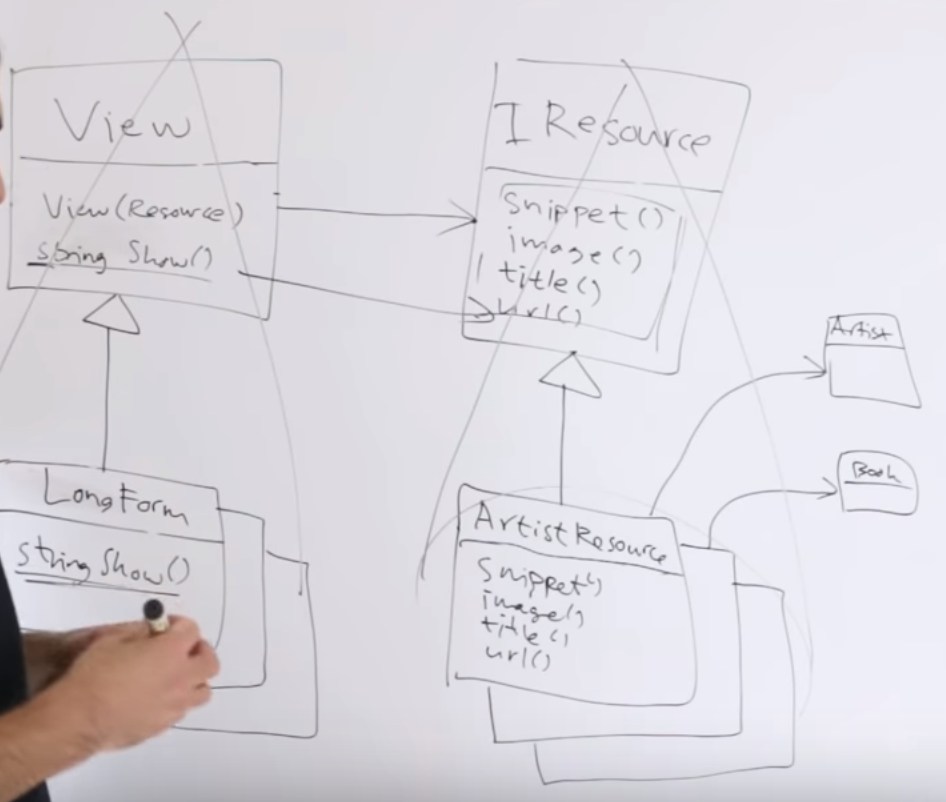 View
View(Resource)
string Show()
IResource
Snippet()
image()
title()
url()
LongForm
string Show()
ArtistResource
Snippet()
image()
title()
url()
Artist
Book